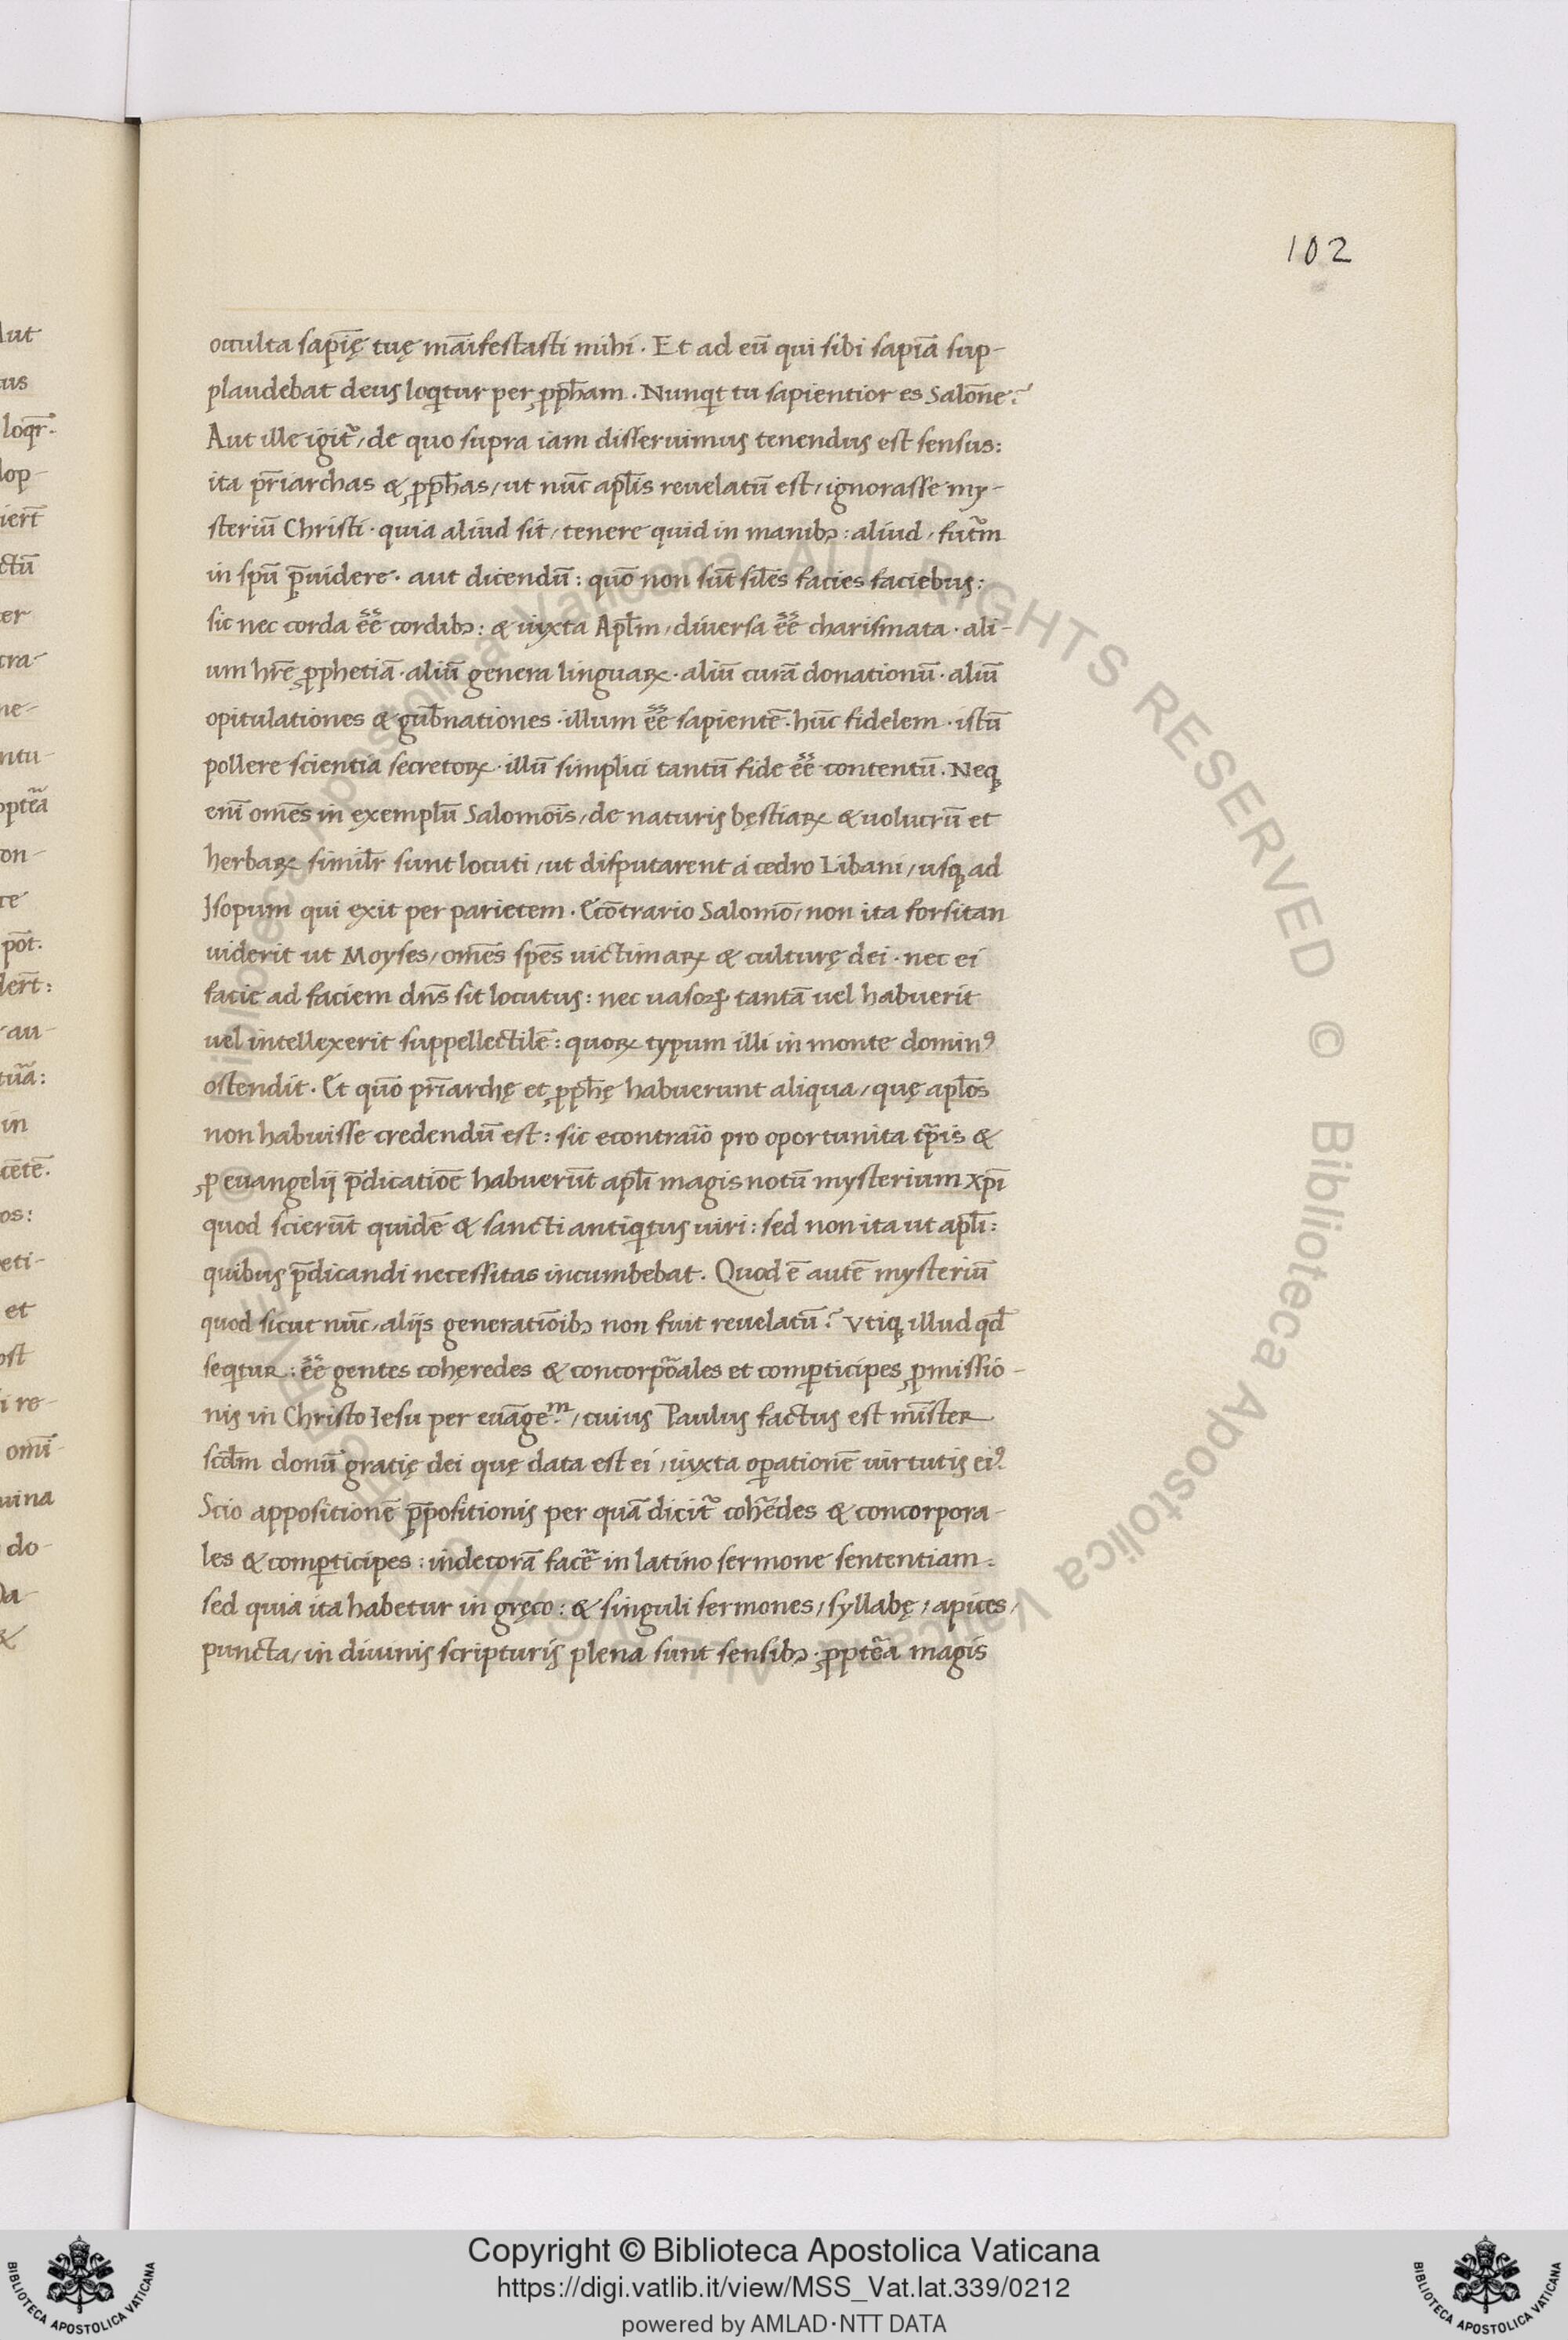 102
occulta sapię̄ tuę māifestasti mihi. Et ad eū qui sibi sapiā sup-
plaudebat deus loqtur per ꝓpħam. Nunqt tu sapientior es Salōne?
Aut ille igit᷑, de quo supra iam disseruimus tenendus est sensus:
ita pr̄iarchas & ꝓpħas, ut nūc apl̄is reuelatū est, ignorasse my-
steriū Christi. quia aliud sit, tenere quid in manibꝫ: aliud, fut᷑m
in spū p̄uidere. aut dicendū: quō non sūt sil̄es facies faciebus:
sic nec corda eē̄ cordibꝫ: & iuxta Apl̄m, diuersa eē̄ charismata. ali-
um hr̄e ꝓphetiā. aliū genera linguaꝝ. aliū curā donationū. aliū
opitulationes & gub̄nationes. illum eē̄ sapientē. hūc fidelem. istū
pollere scientia secretoꝝ. illū simplici tantū fide eē̄ contentū. Neqꝫ
enī omēs in exemplū Salomōis, de naturis bęstiaꝝ & uolucrū et
herbaꝝ simil̄r sunt locuti, ut disputarent á cedro Libani, usqꝫ ad
Isopum qui exit per parietem. Ecōtrario Salomō, non ita forsitan
uiderit ut Moyses, omēs spēs uictimaꝝ & culturę dei. nec ei
facie ad faciem dn̄s sit locutus: nec uasoꝝ tantā uel habuerit
uel intellexerit suppellectilē: quoꝝ typum illi in monte dominꝰ
ostendit. Et quō pr̄iarchę et ꝓpħę habuerunt aliqua, quę apl̄os
non habuisse credendū est: sic econtraīo pro oportunita tꝑis &
ꝓ euangelij p̄dicatiōe habuerūt apl̄i magis notū mysterium xp̄i
quod scierūt quidē & sancti antiqtus uiri: sed non ita ut apl̄i:
quibus p̄dicandi necessitas incumbebat. Quod ē autē mysteriū
quod sicut nūc, alijs generatiōibꝫ non fuit reuelatū? Vtiqꝫ illud qd̄
seqtur: eē̄ gentes cohęredes & concorpōales et comꝑticipes ꝓmissio-
nis in Christo Iesu per euāgeᵐ, cuius Paulus factus est mīster
scd̄m donū gratię dei quę data est ei, iuxta oꝑationē uirtutis eiꝰ.
Scio appositionē p̄positionis per quā dicit᷑ coħedes & concorpora-
les & comꝑticipes: indecorā facē in latino sermone sententiam:
sed quia ita habetur in gręco: & singuli sermones, syllabę, apices,
puncta, in diuinis scripturis plena sunt sensibꝫ. ꝓptēa magis
Copyright © Biblioteca Apostolica Vaticana
https://digi.vatlib.it/view/MSS_Vat.lat.339/0212
powered by AMLAD·NTT DATA